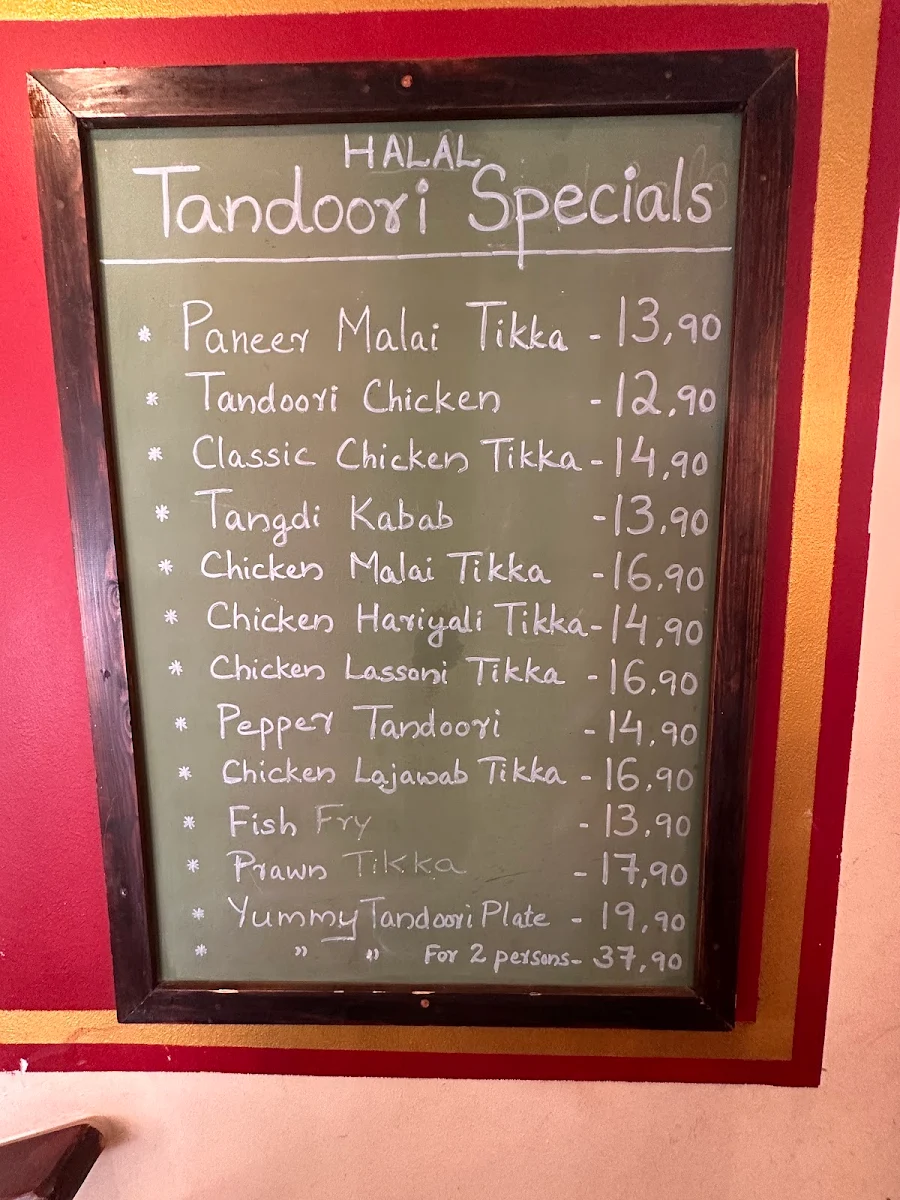 HALAL
Tandoori Specials
* Paneer Malai Tikka - 13,90
* Tandoori Chicken - 12.90
* Classic Chicken Tikka - 14,90
* Tangdi Kabab - 13.90
* Chicken Malai Tikka - 16,90
* Chicken Hariyali Tikka - 14,90
* Chicken Lassoni Tikka - 16.90
* Pepper Tandoori - 14.90
* Chicken Lajawab Tikka - 16,90
* Fish Fry - 13.90
* Prawn Tikka - 17,90
* Yummy Tandoori Plate - 19,90
* " " For 2 persons - 37,90